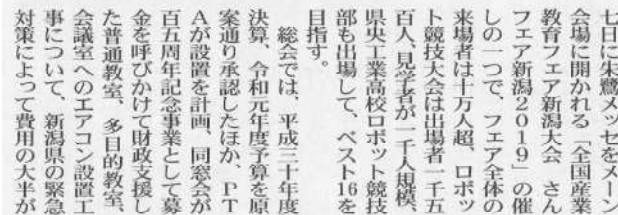 七日に朱鷺メッセをメーン
会場に開かれる「全国産業
教育フェア新潟大会　さん
フェア新潟２０１９」の催
しの一つで、フェア全体の
来場者は十万人超、ロボッ
ト競技大会は出場者一千五
百人、見学者が一千人規模、
県央工業高校ロボット競技
部も出場して、ベスト16を
目指す。
　総会では、平成三十年度
決算、令和元年度予算を原
案通り承認したほか、ＰＴ
Ａが設置を計画、同窓会が
百五周年記念事業として募
金を呼びかけて財政支援し
た普通教室、多目的教室、
会議室へのエアコン設置工
事について、新潟県の緊急
対策によって費用の大半が